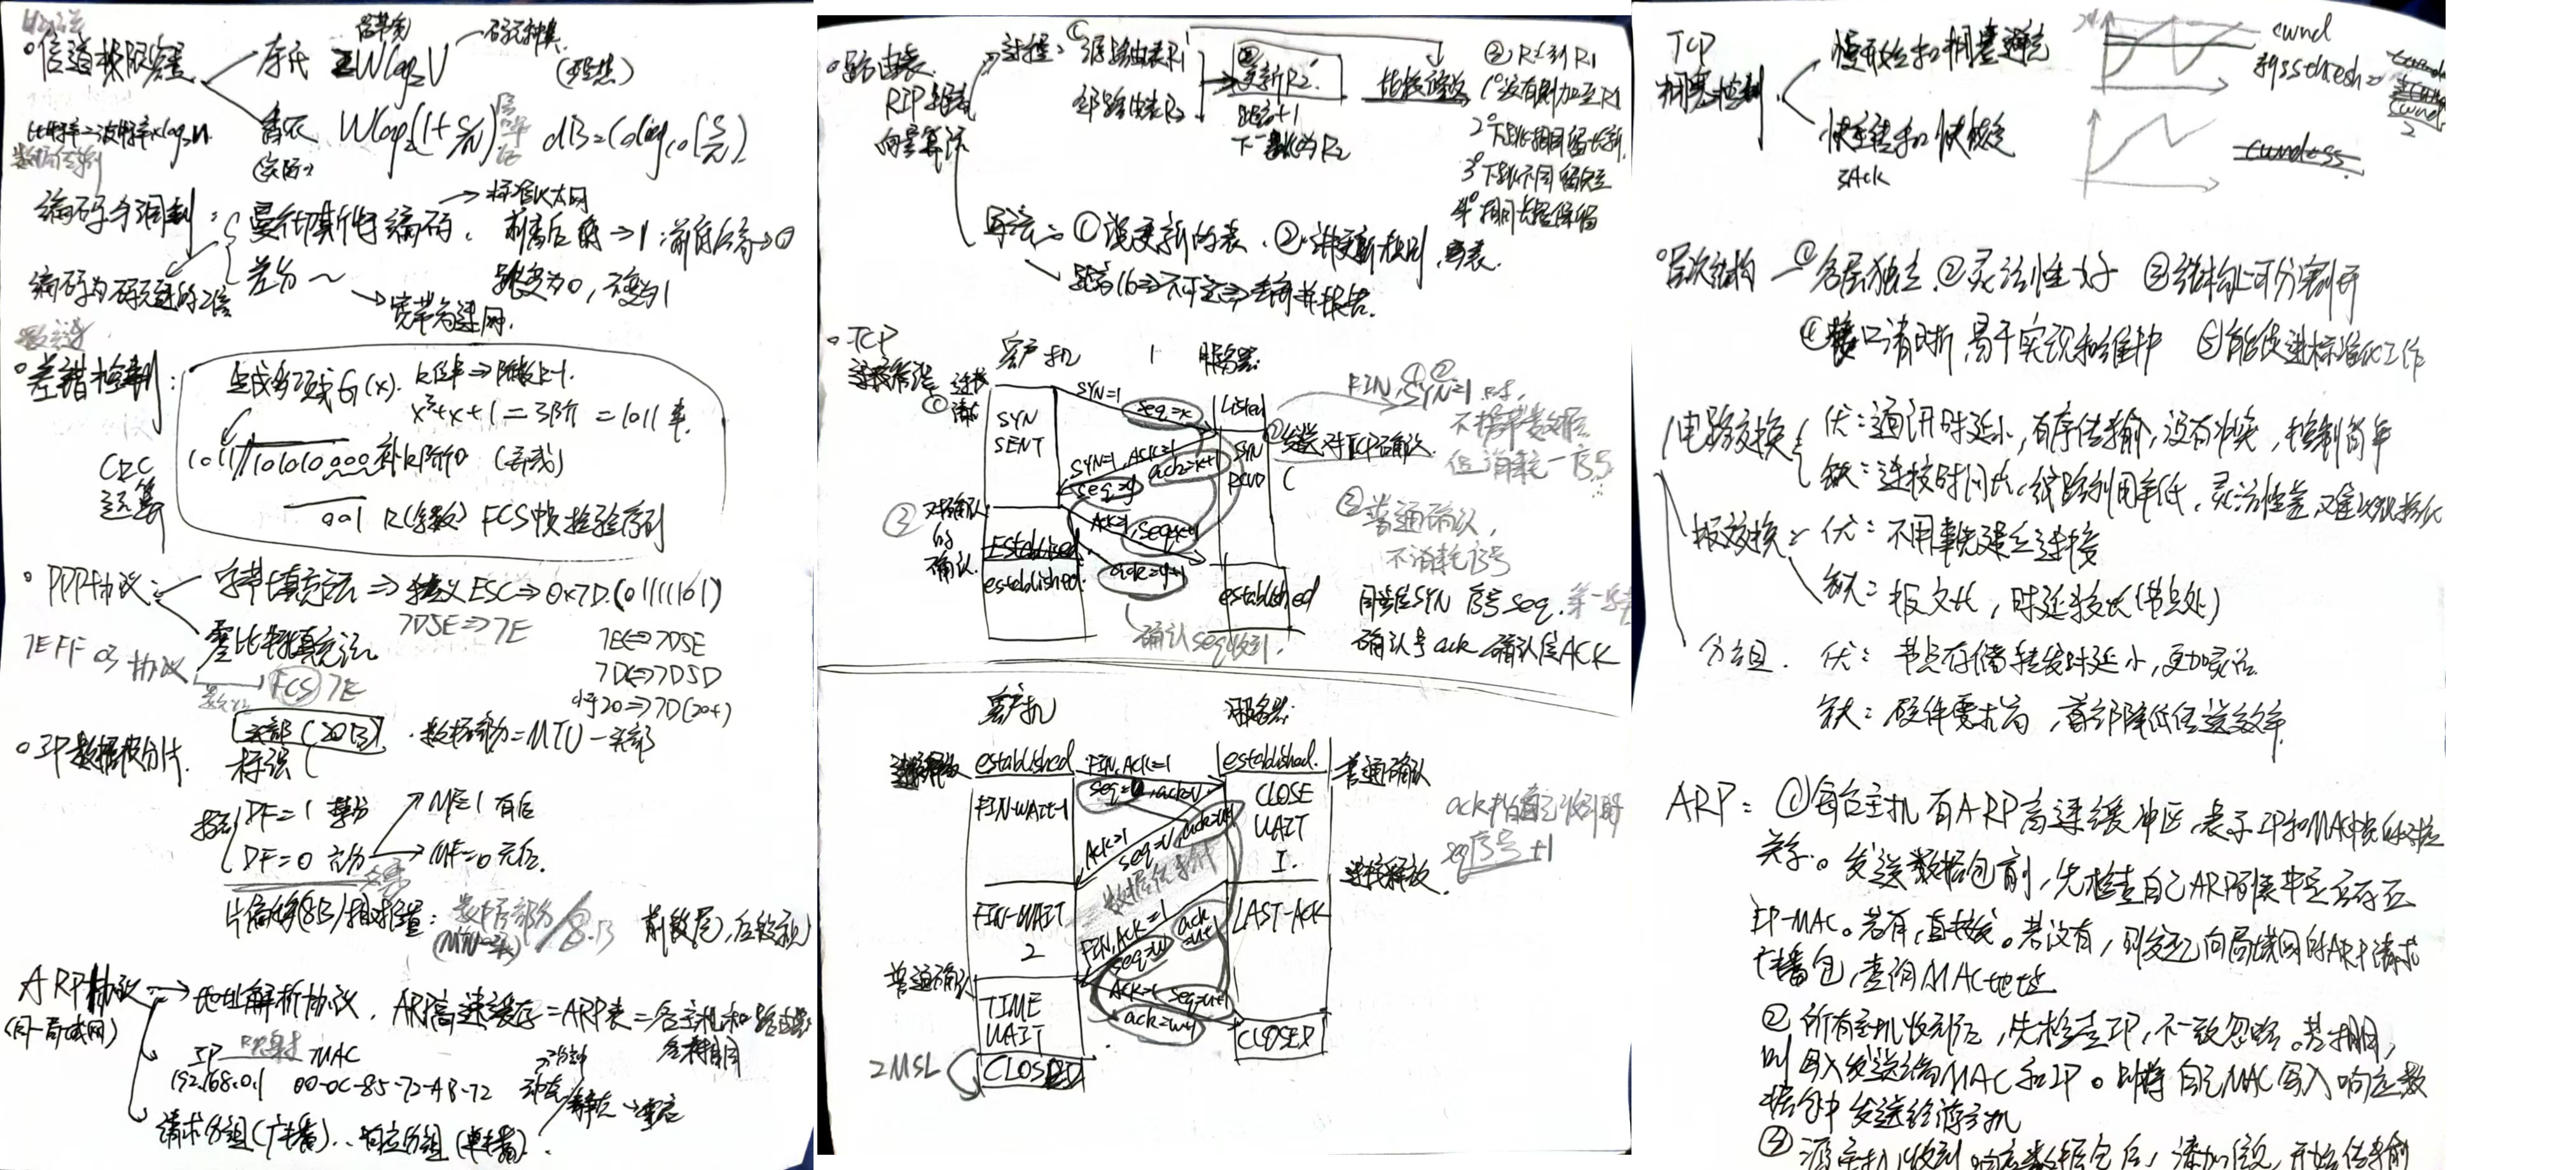 信道极限容量
奈氏 2Wlog₂V
码元种类
(理想)
比特率=波特率×log₂n
香农 Wlog₂(1+S/N)
信噪比
dB=10log₁₀(S/N)
(实际)
编码与调制:
曼彻斯特编码. 前高后低→1;前低后高→0
→标准以太网
差分~
跳变为0,不变为1
→宽带高速网.
差错控制:
生成多项式G(x). k位串⇒阶数k-1.
x³+x+1=3阶=1011串.
1011/1010000补k阶0 (异或)
CRC
运算
001 R(余数) FCS帧检验序列
PPP协议:
字节填充法⇒转义ESC⇒0x7D.(01111101)
7D5E⇒7E
零比特填充法
7E⇔7D5E
7D⇔7D5D
小于20⇒7D(20+)
7E FF 03 协议
FCS 7E
IP数据报分片.
头部(20B)
·数据部分=MTU-头部
标识
标志
DF=1 禁分
DF=0 允分
MF=1 有后
MF=0 无后.
片偏移(8B)相对量:数据部分/8B
(MTU-头)
ARP协议→地址解析协议.ARP高速缓存=ARP表=各主机和路由器
(同一局域网)
IP 映射 MAC
192.168.0.1 00-0C-85-72-AB-72
动态/静态→重启
请求分组(广播)..响应分组(单播).
路由表.
RIP距离
向量算法
过程:①源路由表R1
邻路由表R2
②更新R2.
距离+1
下一跳为R2
比较更改
③R2到R1
1°没有则加至R1
2°下跳相同留最新.
3°下跳不同留短
4°相同
写法:①谁更新的表.②讲更新规则,写表.
距离16⇒不可达
TCP
连接管理
客户机
服务器.
连接
请求
①
SYN
SENT
SYN=1
seq=x
Listen
FIN,SYN=1时,
不携带数据
但消耗一序号
SYN=1,ACK=1
seq=y
ack=x+1
SYN
RCVD
②发送对TCP确认.
③
对确认
的
确认.
ACK=1,seq=x+1
ack=y+1
established.
established
③普通确认,
不消耗序号
同步位SYN 序号seq.
确认号ack 确认位ACK
确认seq收到.
客户机
服务器.
连接释放
established
FIN,ACK=1
seq=u,ack=v
established.
普通确认
FIN-WAIT-1
CLOSE
WAIT
ACK=1
seq=v
ack=u+1
ack指自己收到
seq序号+1
数据传输
连接释放.
FIN-WAIT
2
FIN,ACK=1
seq=w
ack
=u+1
LAST-ACK
普通确认
TIME
WAIT
ACK=1 seq=u+1
ack=w+1
CLOSED
2MSL
CLOSED
TCP
拥塞控制
慢开始和拥塞避免
快重传和快恢复
3Ack
cwnd
ssthresh=
cwnd
2
层次结构 ①各层独立.②灵活性好 ③结构上可分割开
④接口清晰,易于实现和维护 ⑤能促进标准化工作
电路交换 优:通讯时延小,有序传输,没有冲突,控制简单
缺:连接时间长,线路利用率低,灵活性差,难以规格化
报文交换 优:不用事先建立连接
缺:报文长,时延较长(节点处)
分组. 优:节点存储转发时延小,更加灵活
缺:硬件要求高,首部降低传送效率.
ARP:①每台主机有ARP高速缓冲区,表示IP和MAC
关系。发送数据包前,先检查自己ARP列表中是否存在
IP-MAC。若有,直接发。若没有,则发起向局域网的ARP请求
广播包,查询MAC地址
②所有主机收到后,先检查IP,不一致忽略。若相同,
则写入发送端MAC和IP。则将自己MAC写入响应数
据包中发送给源主机
③源主机收到响应数据包后,添加信息,开始传输